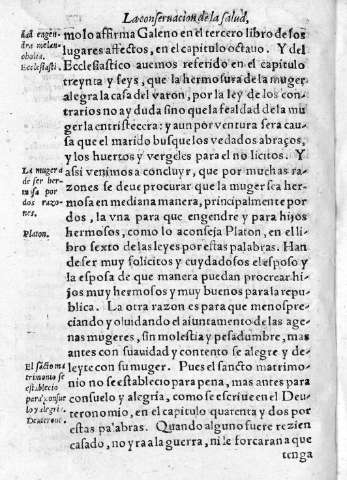 La conservacion de la salud,
dad engen-
dra melan-
cholia.
Ecclesiasti.
mo lo affirma Galeno en el tercero libro de los
lugares affectos, en el capitulo octauo. Y del
Ecclesiastico auemos referido en el capitulo
treynta y seys, que la hermosura de la muger
alegra la casa del varon, por la ley de los con-
trarios no ay duda sino que la fealdad de la mu
ger la entristecera: y aun por ventura sera cau-
sa que el marido busque los vedados abraços,
y los huertos y vergeles para el no licitos. Y
La muger d
ue ser her
mosa por
dos razo-
nes.
assi venimos a concluyr, que por muchas ra-
zones se deue procurar que la muger sea her-
mosa en mediana manera, principalmente por
dos, la vna para que engendre y para hijos
Platon.
hermosos, como lo aconseja Platon, en el li-
bro sexto de las leyes por estas palabras. Han
de ser muy solicitos y cuydadosos el esposo y
la esposa de que manera puedan procrear hi-
jos muy hermosos y muy buenos para la repu-
blica. La otra razon es para que menospre-
ciando y oluidando el aiuntamento de las age-
nas mugeres, sin molestia y pesadumbre, mas
antes con suauidad y contento se alegre y de-
El sācto ma
trimonio se
establecio
para consue
lo y alegria.
Deuterono.
leyte con su muger. Pues el sancto matrimo-
nio no se establecio para pena, mas antes para
consuelo y alegria, como se escriue en el Deu-
teronomio, en el capitulo quarenta y dos por
estas palabras. Quando alguno fuere rezien
casado, no yra a la guerra, ni le forcaran a que
tenga